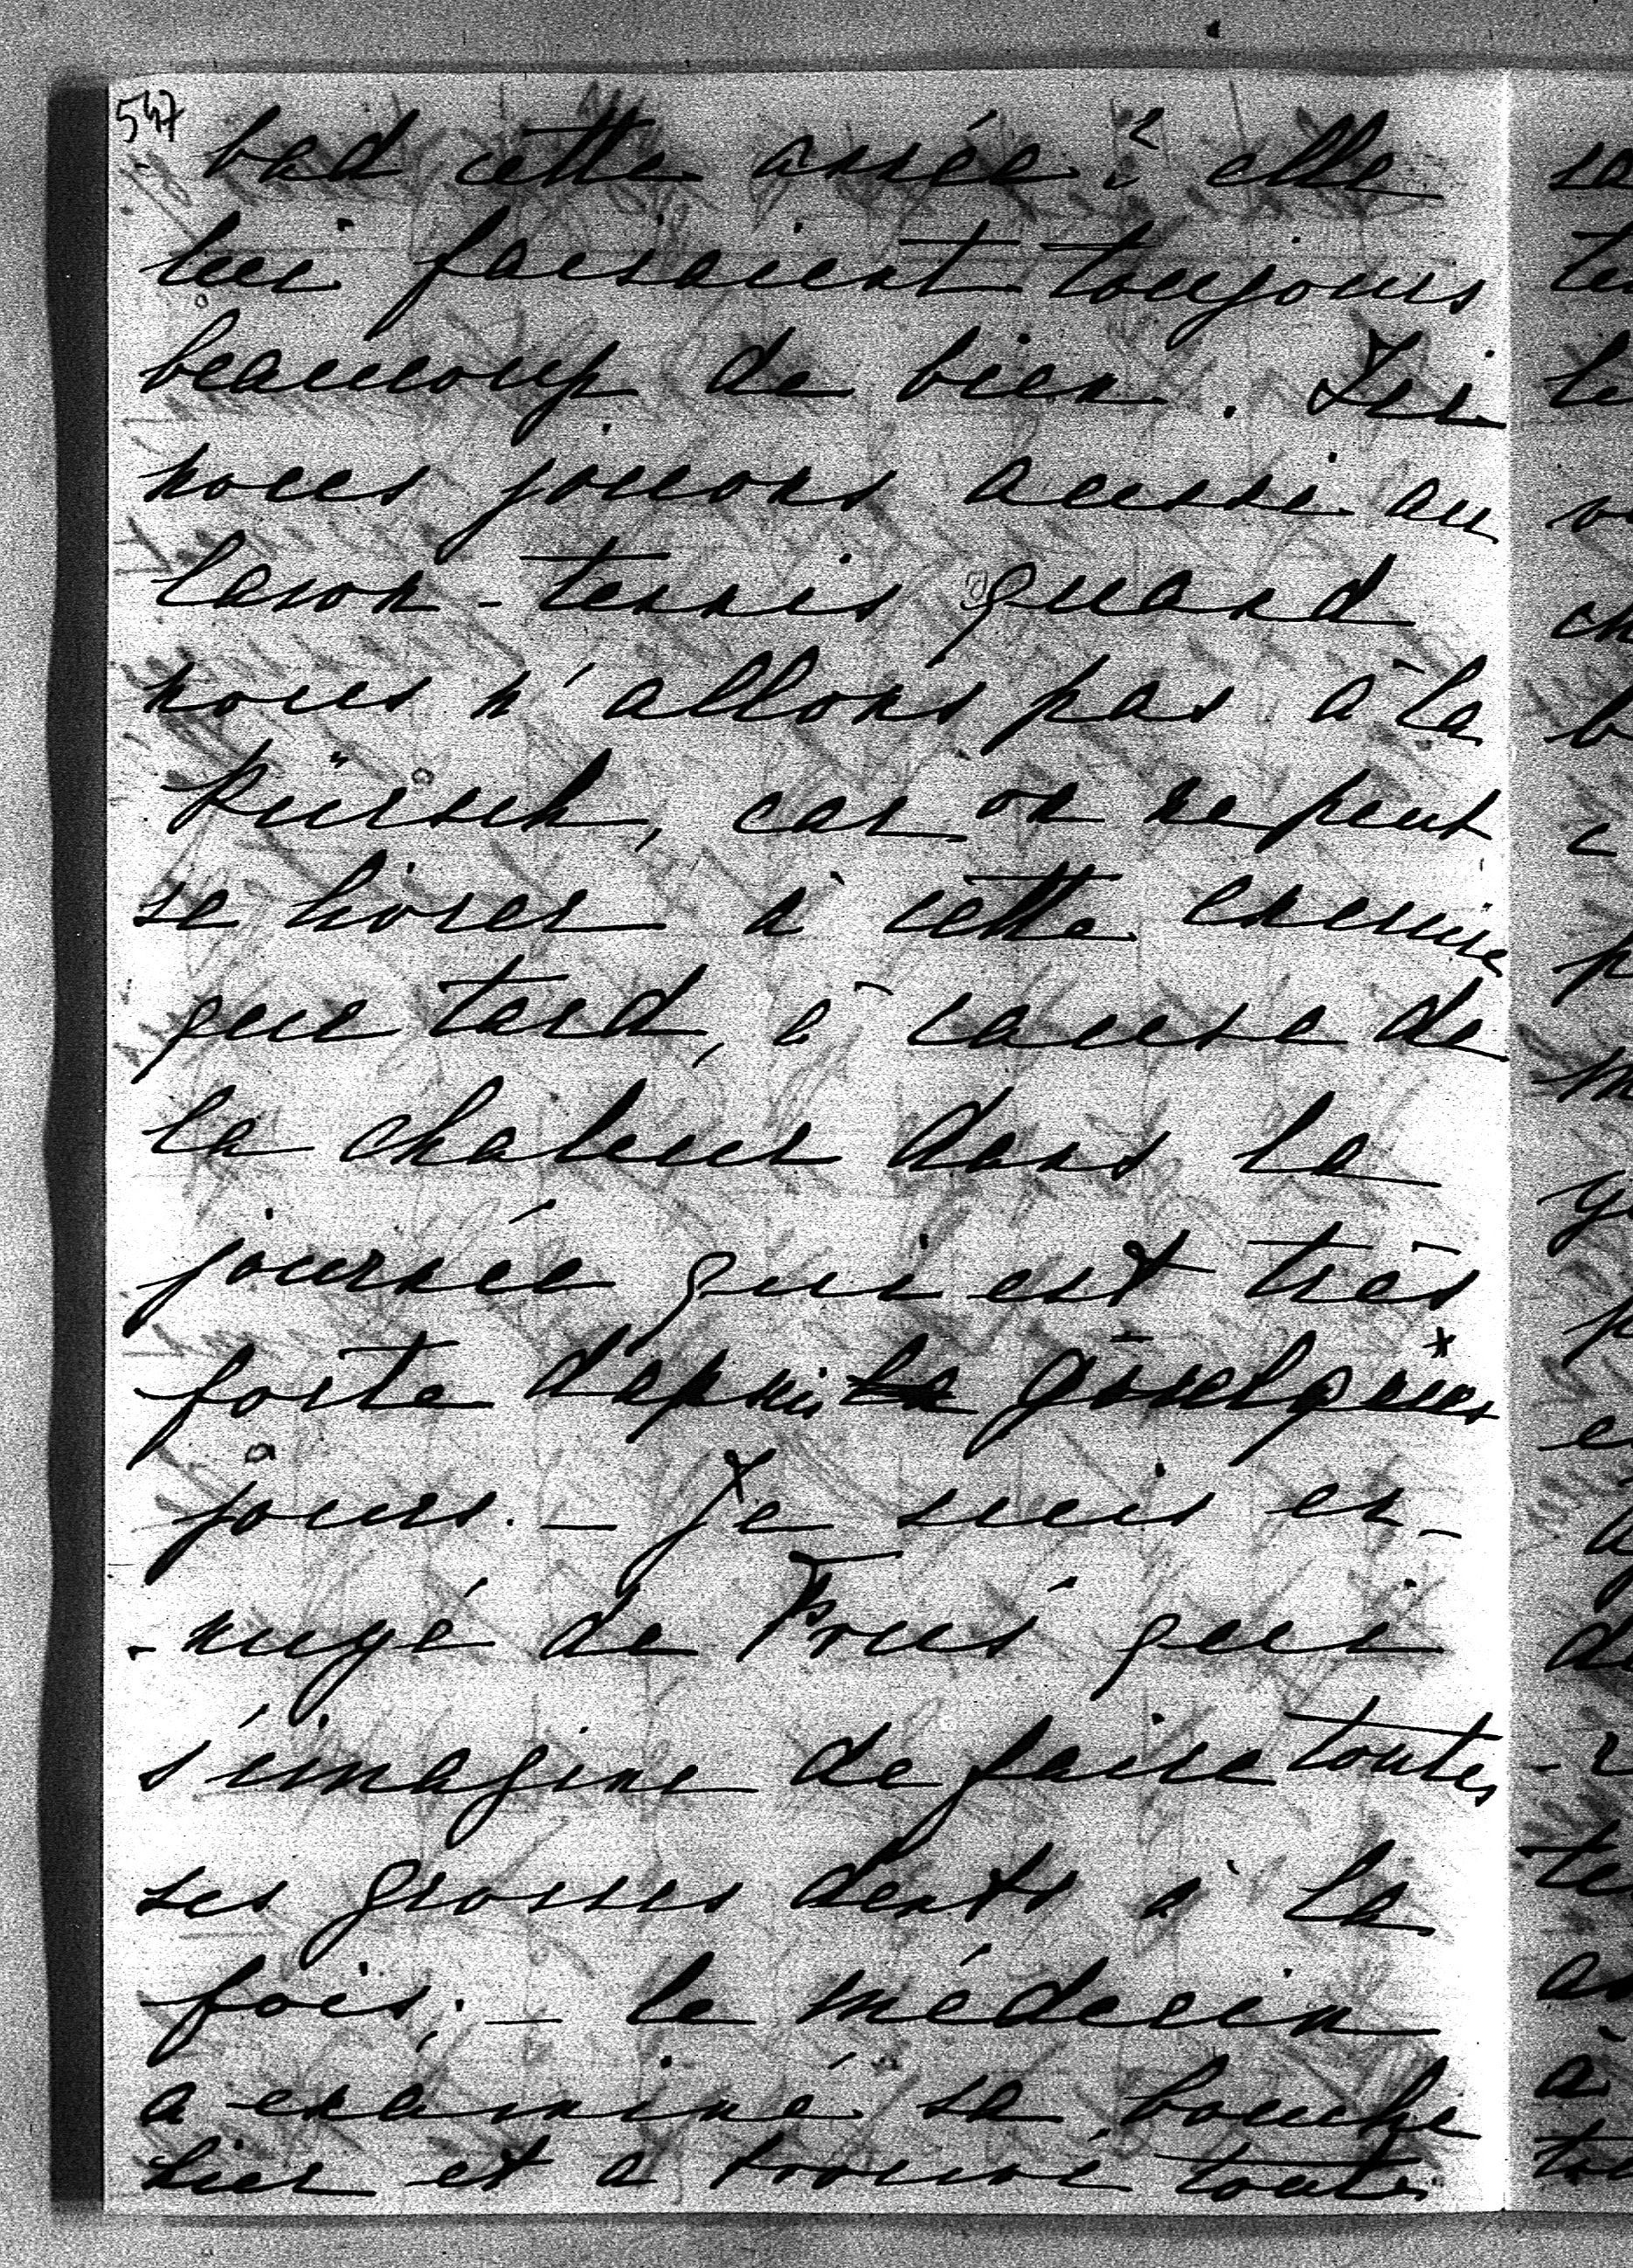 547
bad cette année? elle
lui faisaient toujours
beaucoup de bien. Ici
nous jouons aussi au
lawn-tennis quand
nous n'allons pas à la
Pürsch, car on ne peut
se livrer à cette exercice
que tard, à cause de
la chaleur dans la
journée qui est très
forte depuis quelques
jours. — Je suis en-
-nuyé de qui
s'imagine de faire toutes
ses grosses dents à la
fois; — le médecin
a examiné sa bouche
hier et a trouvé toute